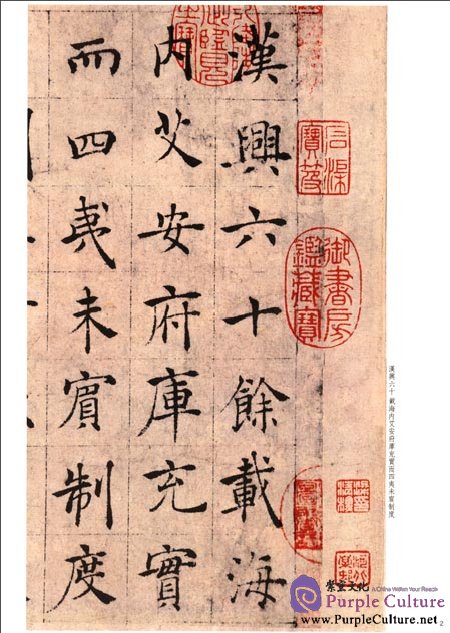 漢興六十餘載海
内艾安府庫充實
而四夷未賓制度
石渠寶笈
御書房鑑藏寶
漢興六十 載海内艾安府庫充實而四夷未賓制度
A China Within Your Reach
Purple Culture
www.PurpleCulture.net
2